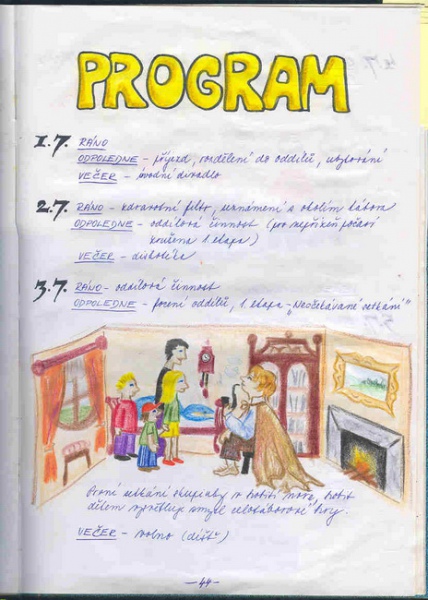 PROGRAM
1.7. RÁNO
ODPOLEDNE - příjezd, rozdělení do oddílů, ubytování
VEČER - úvodní divadlo
2.7. RÁNO - zdravotní filtr, seznámení s okolím tábora
ODPOLEDNE - oddílová činnost (pro nepřízeň počasí
zrušena 1. etapa)
VEČER - diskotéka
3.7. RÁNO - oddílová činnost
ODPOLEDNE - focení oddílů, 1. etapa - "Neočekávané setkání"
První setkání skupinky v hobití noře, hobit
dětem vysvětluje smysl celotáborové hry.
VEČER - volno (déšť)
- 49 -